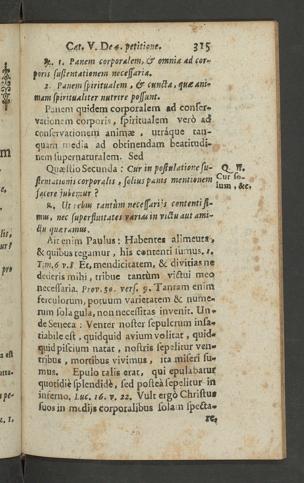 Cat. V. De 4. petitione. 315
R. 1. Panem corporalem, & omnia ad cor-
poris sustentationem necessaria.
2. Panem spiritualem, & cuncta, quæ ani-
mam spiritualiter nutrire possunt.
Panem quidem corporalem ad conser-
vationem corporis, spiritualem verò ad
conservationem animæ, utrûque tan-
quam media ad obtinendam beatitudi-
nem supernaturalem. Sed
Quæstio Secunda: Cur in postulatione su-
stentationis corporalis, solius panis mentionem
facere jubemur?
Q. II.
Cur so-
lum, &c.
R. Ut rebus tantùm necessarijs contenti si-
mus, nec superfluitates varias in victu aut ami-
ctu quæramus.
Ait enim Paulus: Habentes alimenta,
& quibus tegamur, his contenti sumus, 1.
Tim. 6 v. 8 Et, mendicitatem, & divitias ne
dederis mihi, tribue tantùm victui meo
necessaria. Prov. 30. vers. 9. Tantam enim
ferculorum, potuum varietatem & nume-
rum sola gula, non necessitas invenit. Un-
de Seneca: Venter noster sepulcrum insa-
tiabile est, quidquid avium volitat, quid-
quid piscium natat, nostris sepelitur ven-
tribus, mortibus vivimus, ita miseri su-
mus. Epulo talis erat, qui epulabatur
quotidiè splendidè, sed posteà sepelitur in
inferno, Luc. 16. v. 22. Vult ergò Christus
suos in medijs corporalibus solam specta-
re,